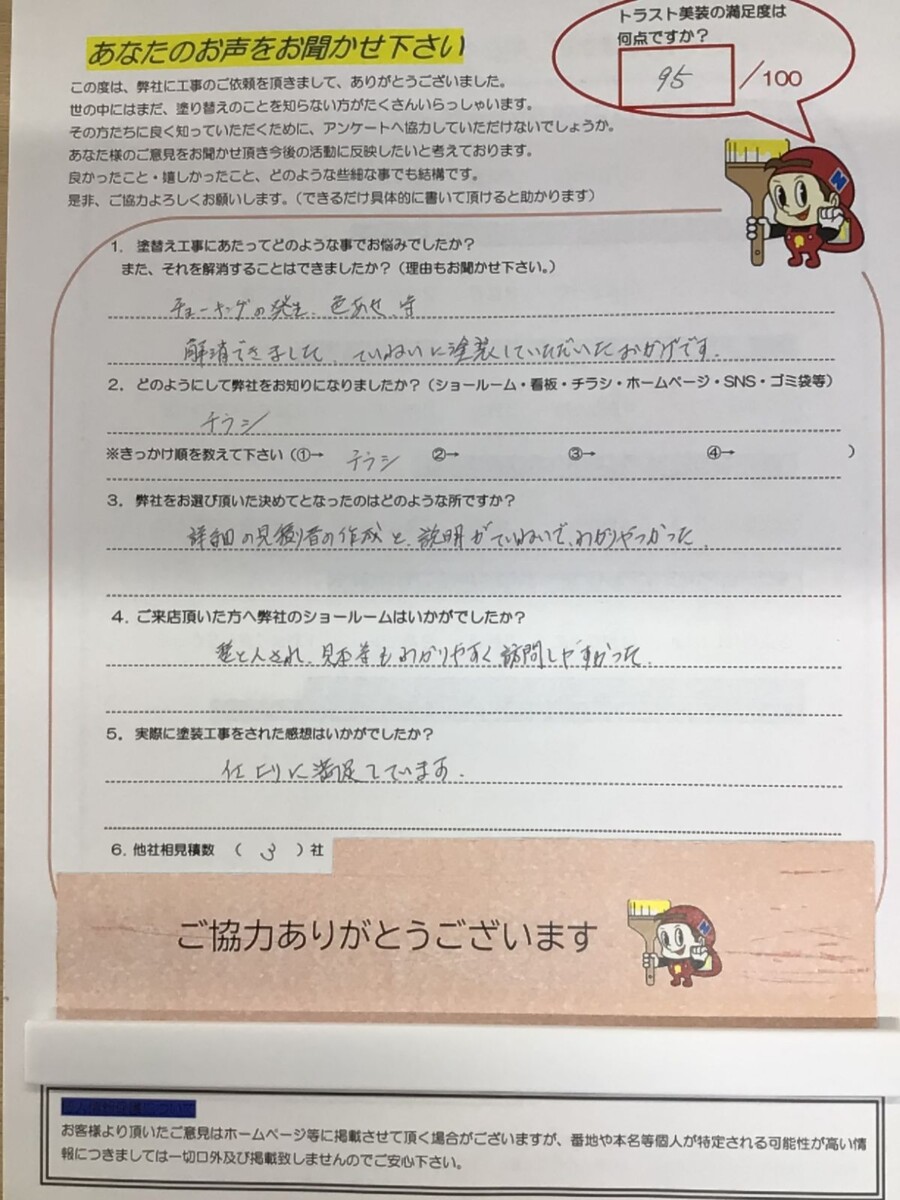 トラスト美装の満足度は
何点ですか?
95 /100
あなたのお声をお聞かせ下さい
この度は、弊社に工事のご依頼を頂きまして、ありがとうございました。
世の中にはまだ、塗り替えのことを知らない方がたくさんいらっしゃいます。
その方たちに良く知っていただくために、アンケートへ協力していただけないでしょうか。
あなた様のご意見をお聞かせ頂き今後の活動に反映したいと考えております。
良かったこと・嬉しかったこと、どのような些細な事でも結構です。
是非、ご協力よろしくお願いします。(できるだけ具体的に書いて頂けると助かります)
1. 塗替え工事にあたってどのような事でお悩みでしたか?
また、それを解消することはできましたか?(理由もお聞かせ下さい。)
チョーキングの発生、色あせ、等
解消できました、ていねいに塗装していただいたおかげです。
2. どのようにして弊社をお知りになりましたか?(ショールーム・看板・チラシ・ホームページ・SNS・ゴミ袋等)
チラシ
※きっかけ順を教えて下さい(①→ チラシ ②→ ③→ ④→ )
3. 弊社をお選び頂いた決めてとなったのはどのような所ですか?
詳細の見積り書の作成と、説明がていねいで、わかりやすかった、
4. ご来店頂いた方へ弊社のショールームはいかがでしたか?
整とんされ、見本等もわかりやすく訪問しやすかった、
5. 実際に塗装工事をされた感想はいかがでしたか?
仕上りに満足しています。
6. 他社相見積数 ( 3 )社
ご協力ありがとうございます
お客様より頂いたご意見はホームページ等に掲載させて頂く場合がございますが、番地や本名等個人が特定される可能性が高い情
報につきましては一切口外及び掲載致しませんのでご安心下さい。